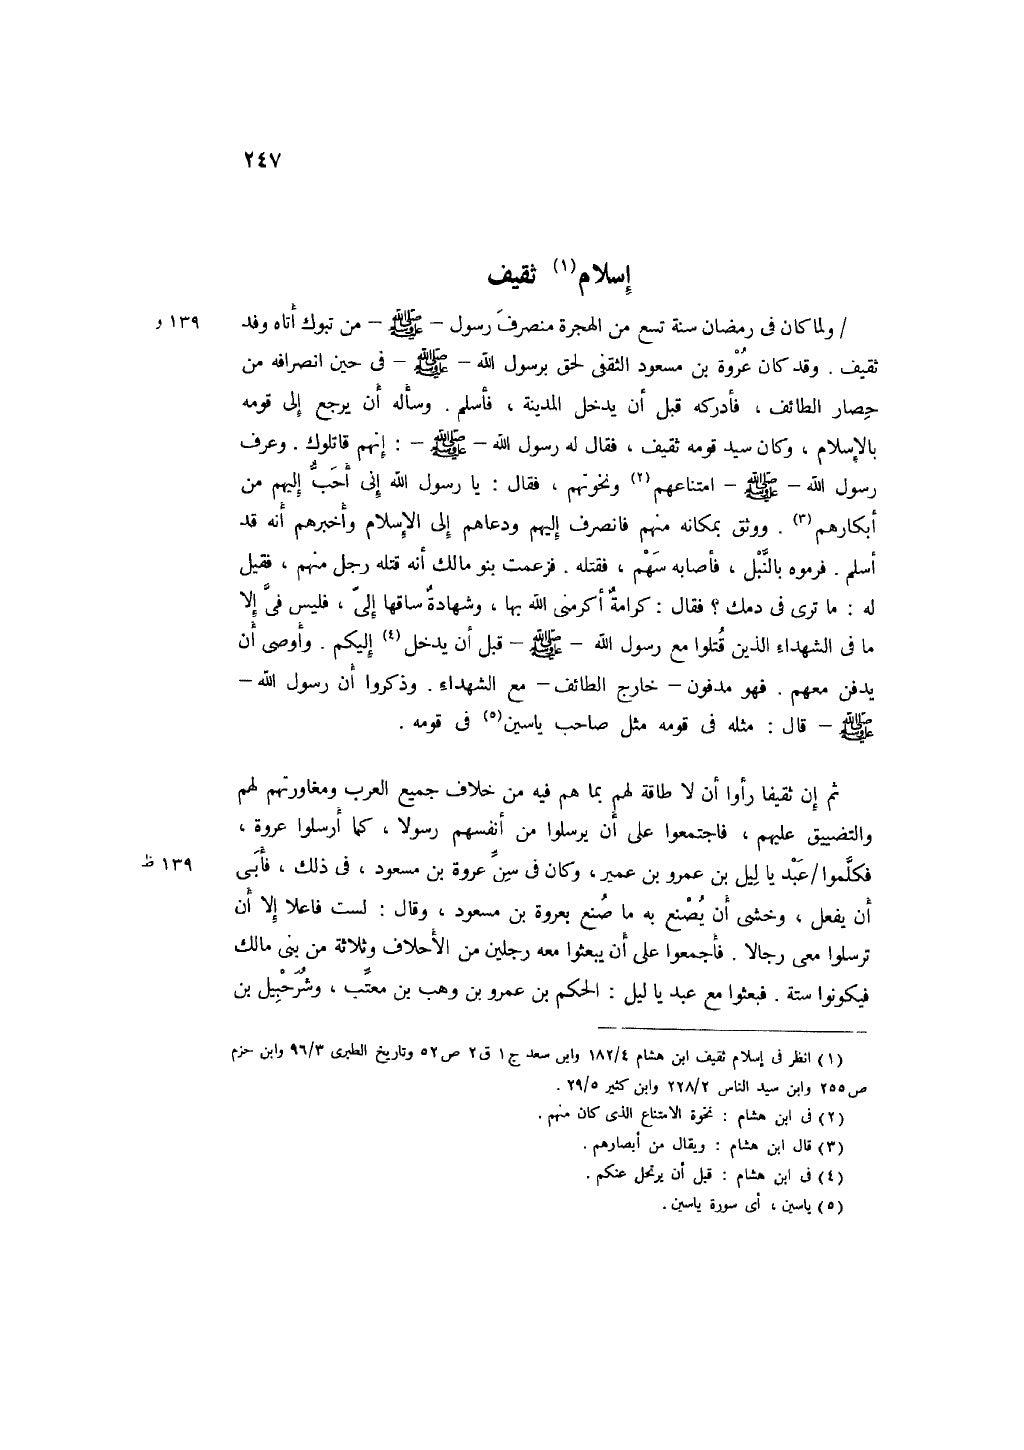 ٢٤٧
إسلام(١) ثقيف
/ ولما كان فى رمضان سنة تسع من الهجرة منصرفَ رسول – ﷺ – من تبوك أتاه وفد ١٣٩ و
ثقيف . وقد كان عُرْوة بن مسعود الثقفى لحق برسول الله – ﷺ – فى حين انصرافه من
حِصار الطائف ، فأدركه قبل أن يدخل المدينة ، فأسلم . وسأله أن يرجع إلى قومه
بالإسلام ، وكان سيد قومه ثقيف ، فقال له رسول الله – ﷺ – : إنهم قاتلوك . وعرف
رسول الله – ﷺ – امتناعهم(٢) ونخوتهم ، فقال : يا رسول الله إنى أَحَبُّ إليهم من
أبكارهم(٣) . ووثق بمكانه منهم فانصرف إليهم ودعاهم إلى الإسلام وأخبرهم أنه قد
أسلم . فرموه بالنَّبْل ، فأصابه سَهْم ، فقتله . فزعمت بنو مالك أنه قتله رجل منهم ، فقيل
له : ما ترى فى دمك ؟ فقال : كرامةٌ أكرمنى الله بها ، وشهادةٌ ساقها إلىّ ، فليس فىَّ إلا
ما فى الشهداء الذين قُتلوا مع رسول الله – ﷺ – قبل أن يدخل(٤) إليكم . وأوصى أن
يدفن معهم . فهو مدفون – خارج الطائف – مع الشهداء . وذكروا أن رسول الله –
ﷺ – قال : مثله فى قومه مثل صاحب ياسين(٥) فى قومه .
ثم إن ثقيفا رأوا أن لا طاقة لهم بما هم فيه من خلاف جميع العرب ومغاورتهم لهم
والتضييق عليهم ، فاجتمعوا على أن يرسلوا من أنفسهم رسولا ، كما أرسلوا عروة ،
فكلَّموا / عَبْد يا لِيل بن عمرو بن عمير ، وكان فى سِنِّ عروة بن مسعود ، فى ذلك ، فأَبَى ١٣٩ ظ
أن يفعل ، وخشى أن يُصْنع به ما صُنع بعروة بن مسعود ، وقال : لست فاعلا إلا أن
ترسلوا معى رجالا . فأجمعوا على أن يبعثوا معه رجلين من الأحلاف وثلاثة من بنى مالك
فيكونوا ستة . فبعثوا مع عبد يا ليل : الحكم بن عمرو بن وهب بن معتِّب ، وشُرَحْبِيل بن
(١) انظر فى إسلام ثقيف ابن هشام ١٨٢/٤ وابن سعد ج١ ق٢ ص٥٢ وتاريخ الطبرى ٩٦/٣ وابن حزم
ص٢٥٥ وابن سيد الناس ٢٢٨/٢ وابن كثير ٢٩/٥ .
(٢) فى ابن هشام : نخوة الامتناع الذى كان منهم .
(٣) قال ابن هشام : ويقال من أبصارهم .
(٤) فى ابن هشام : قبل أن يرتحل عنكم .
(٥) ياسين ، أى سورة ياسين .